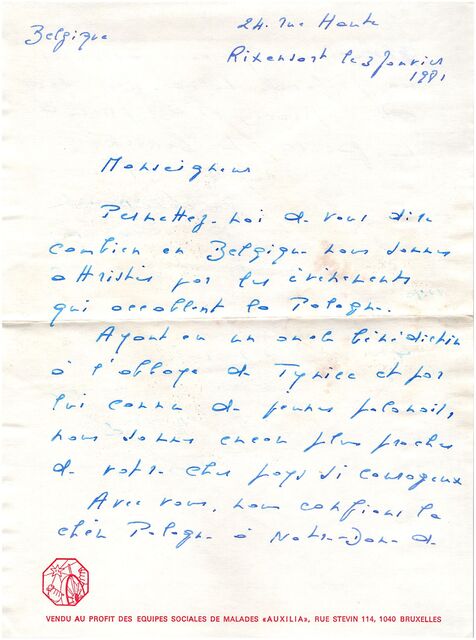 Belgique
24. rue Haute
Rixensart le 3 Janvier
1981
Monseigneur
Permettez-moi de vous dire
combien en Belgique nous sommes
attristés par les évènements
qui accablent la Pologne.
Ayant eu un oncle bénédictin
à l'abbaye de Tyniec et par
lui connu de jeunes polonais,
nous sommes encore plus proches
de votre cher pays si courageux
Avec vous, nous confions la
chère Pologne à Notre-Dame de
VENDU AU PROFIT DES EQUIPES SOCIALES DE MALADES «AUXILIA», RUE STEVIN 114, 1040 BRUXELLES